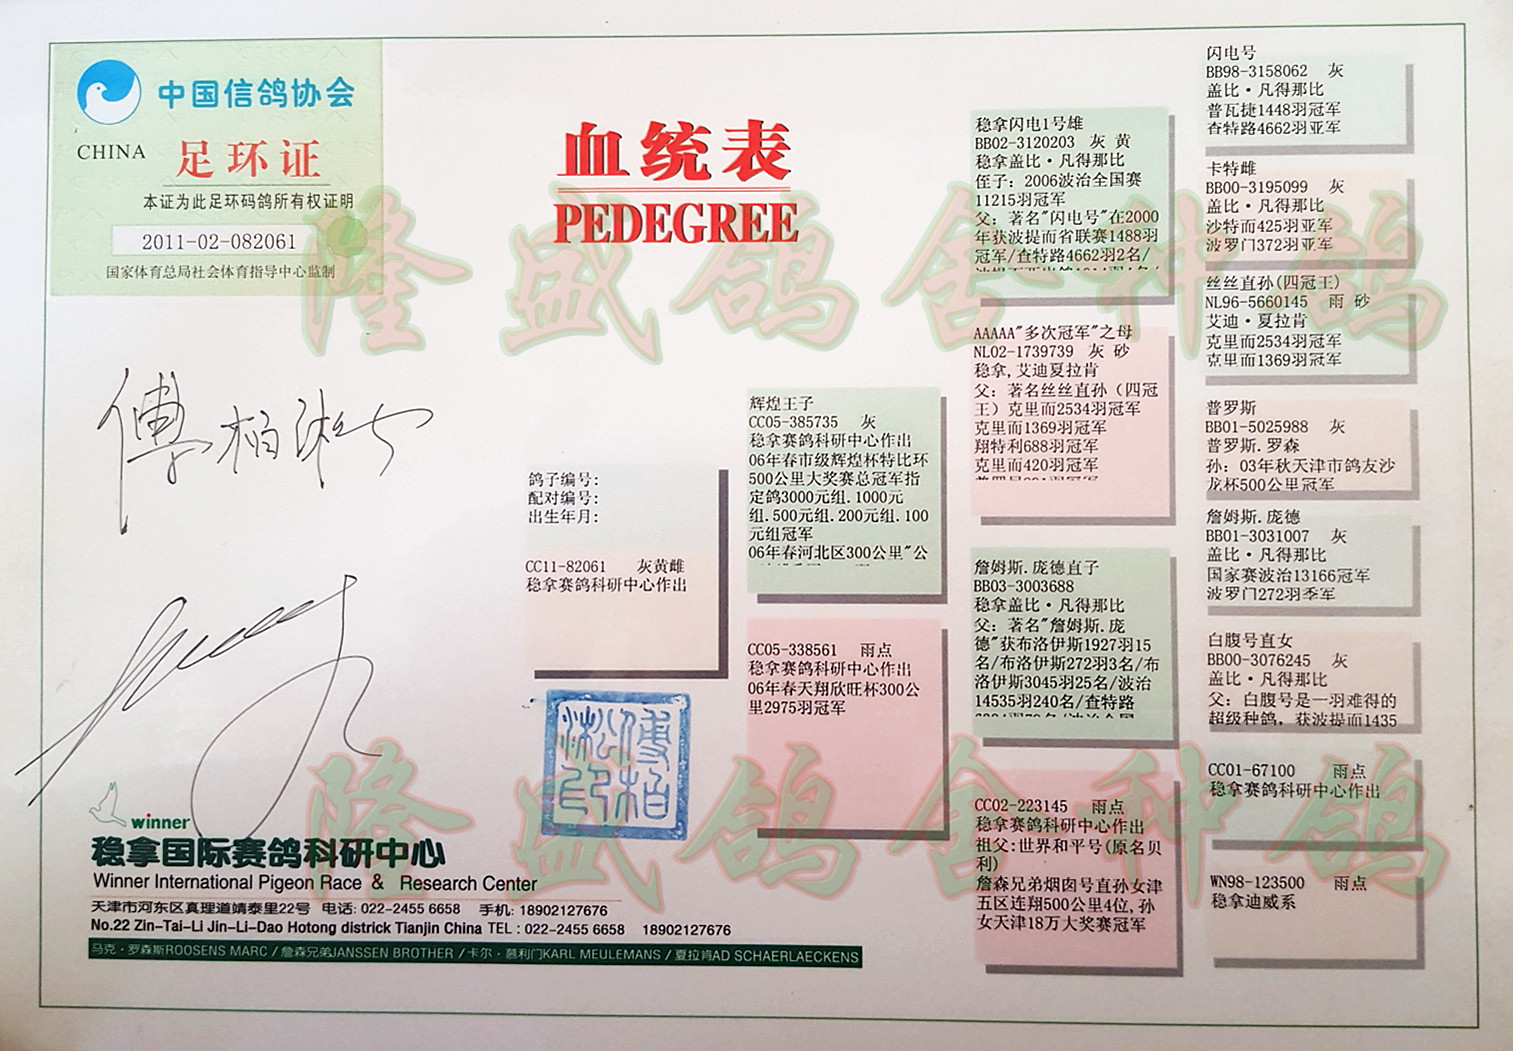 中国信鸽协会
CHINA
足环证
本证为此足环码鸽所有权证明
2011-02-082061
国家体育总局社会体育指导中心监制
血统表
PEDEGREE
隆盛鸽舍种鸽
鸽子编号:
配对编号:
出生年月:
CC11-82061 灰黄雌
稳拿赛鸽科研中心作出
辉煌王子
CC05-385735 灰
稳拿赛鸽科研中心作出
06年春市级辉煌杯特比环
500公里大奖赛总冠军指
定鸽3000元组.1000元
组.500元组.200元组.100
元组冠军
06年春河北区300公里"公
CC05-338561 雨点
稳拿赛鸽科研中心作出
06年春天翔欣旺杯300公
里2975羽冠军
稳拿闪电1号雄
BB02-3120203 灰 黄
稳拿盖比·凡得那比
侄子: 2006波治全国赛
11215羽冠军
父: 著名"闪电号"在2000
年获波提而省联赛1488羽
冠军/查特路4662羽2名/
AAAAA"多次冠军"之母
NL02-1739739 灰 砂
稳拿,艾迪夏拉肯
父: 著名丝丝直孙（四冠
王）克里而2534羽冠军
克里而1369羽冠军
翔特利688羽冠军
克里而420羽冠军
詹姆斯.庞德直子
BB03-3003688
稳拿盖比·凡得那比
父: 著名"詹姆斯.庞
德"获布洛伊斯1927羽15
名/布洛伊斯272羽3名/布
洛伊斯3045羽25名/波治
14535羽240名/查特路
CC02-223145 雨点
稳拿赛鸽科研中心作出
祖父:世界和平号(原名贝
利)
詹森兄弟烟囱号直孙女津
五区连翔500公里4位,孙
女天津18万大奖赛冠军
闪电号
BB98-3158062 灰
盖比·凡得那比
普瓦捷1448羽冠军
查特路4662羽亚军
卡特雌
BB00-3195099 灰
盖比·凡得那比
沙特而425羽亚军
波罗门372羽亚军
丝丝直孙(四冠王)
NL96-5660145 雨 砂
艾迪·夏拉肯
克里而2534羽冠军
克里而1369羽冠军
普罗斯
BB01-5025988 灰
普罗斯.罗森
孙: 03年秋天津市鸽友沙
龙杯500公里冠军
詹姆斯.庞德
BB01-3031007 灰
盖比·凡得那比
国家赛波治13166冠军
波罗门272羽季军
白腹号直女
BB00-3076245 灰
盖比·凡得那比
父: 白腹号是一羽难得的
超级种鸽, 获波提而1435
CC01-67100 雨点
稳拿赛鸽科研中心作出
WN98-123500 雨点
稳拿迪威系
隆盛鸽舍种鸽
winner
稳拿国际赛鸽科研中心
Winner International Pigeon Race & Research Center
天津市河东区真理道靖泰里22号 电话: 022-2455 6658 手机: 18902127676
No.22 Zin-Tai-Li Jin-Li-Dao Hotong districk Tianjin China TEL : 022-2455 6658 18902127676
马克·罗森斯ROOSENS MARC / 詹森兄弟JANSSEN BROTHER / 卡尔·慕利门KARL MEULEMANS / 夏拉肯AD SCHAERLAECKENS